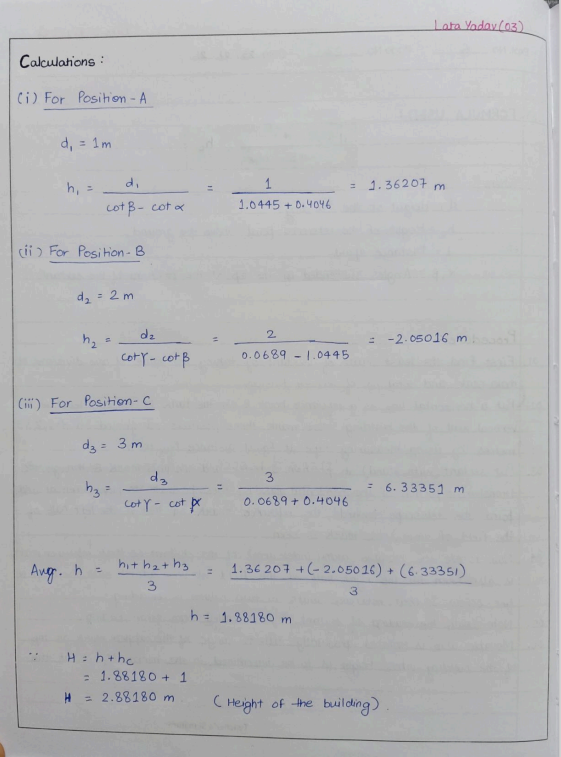 Lata Yadav (03)
Calculations :
(i) For Position - A
d₁ = 1m
h₁ = d₁ / (cot β - cot α) = 1 / (1.0445 + 0.4046) = 1.36207 m
(ii) For Position - B
d₂ = 2 m
h₂ = d₂ / (cot γ - cot β) = 2 / (0.0689 - 1.0445) = -2.05016 m
(iii) For Position - C
d₃ = 3 m
h₃ = d₃ / (cot γ - cot α) = 3 / (0.0689 + 0.4046) = 6.33351 m
Avgr. h = (h₁ + h₂ + h₃) / 3 = (1.36207 + (-2.05016) + (6.33351)) / 3
h = 1.88180 m
∵ H = h + hc
= 1.88180 + 1
H = 2.88180 m (Height of the building)